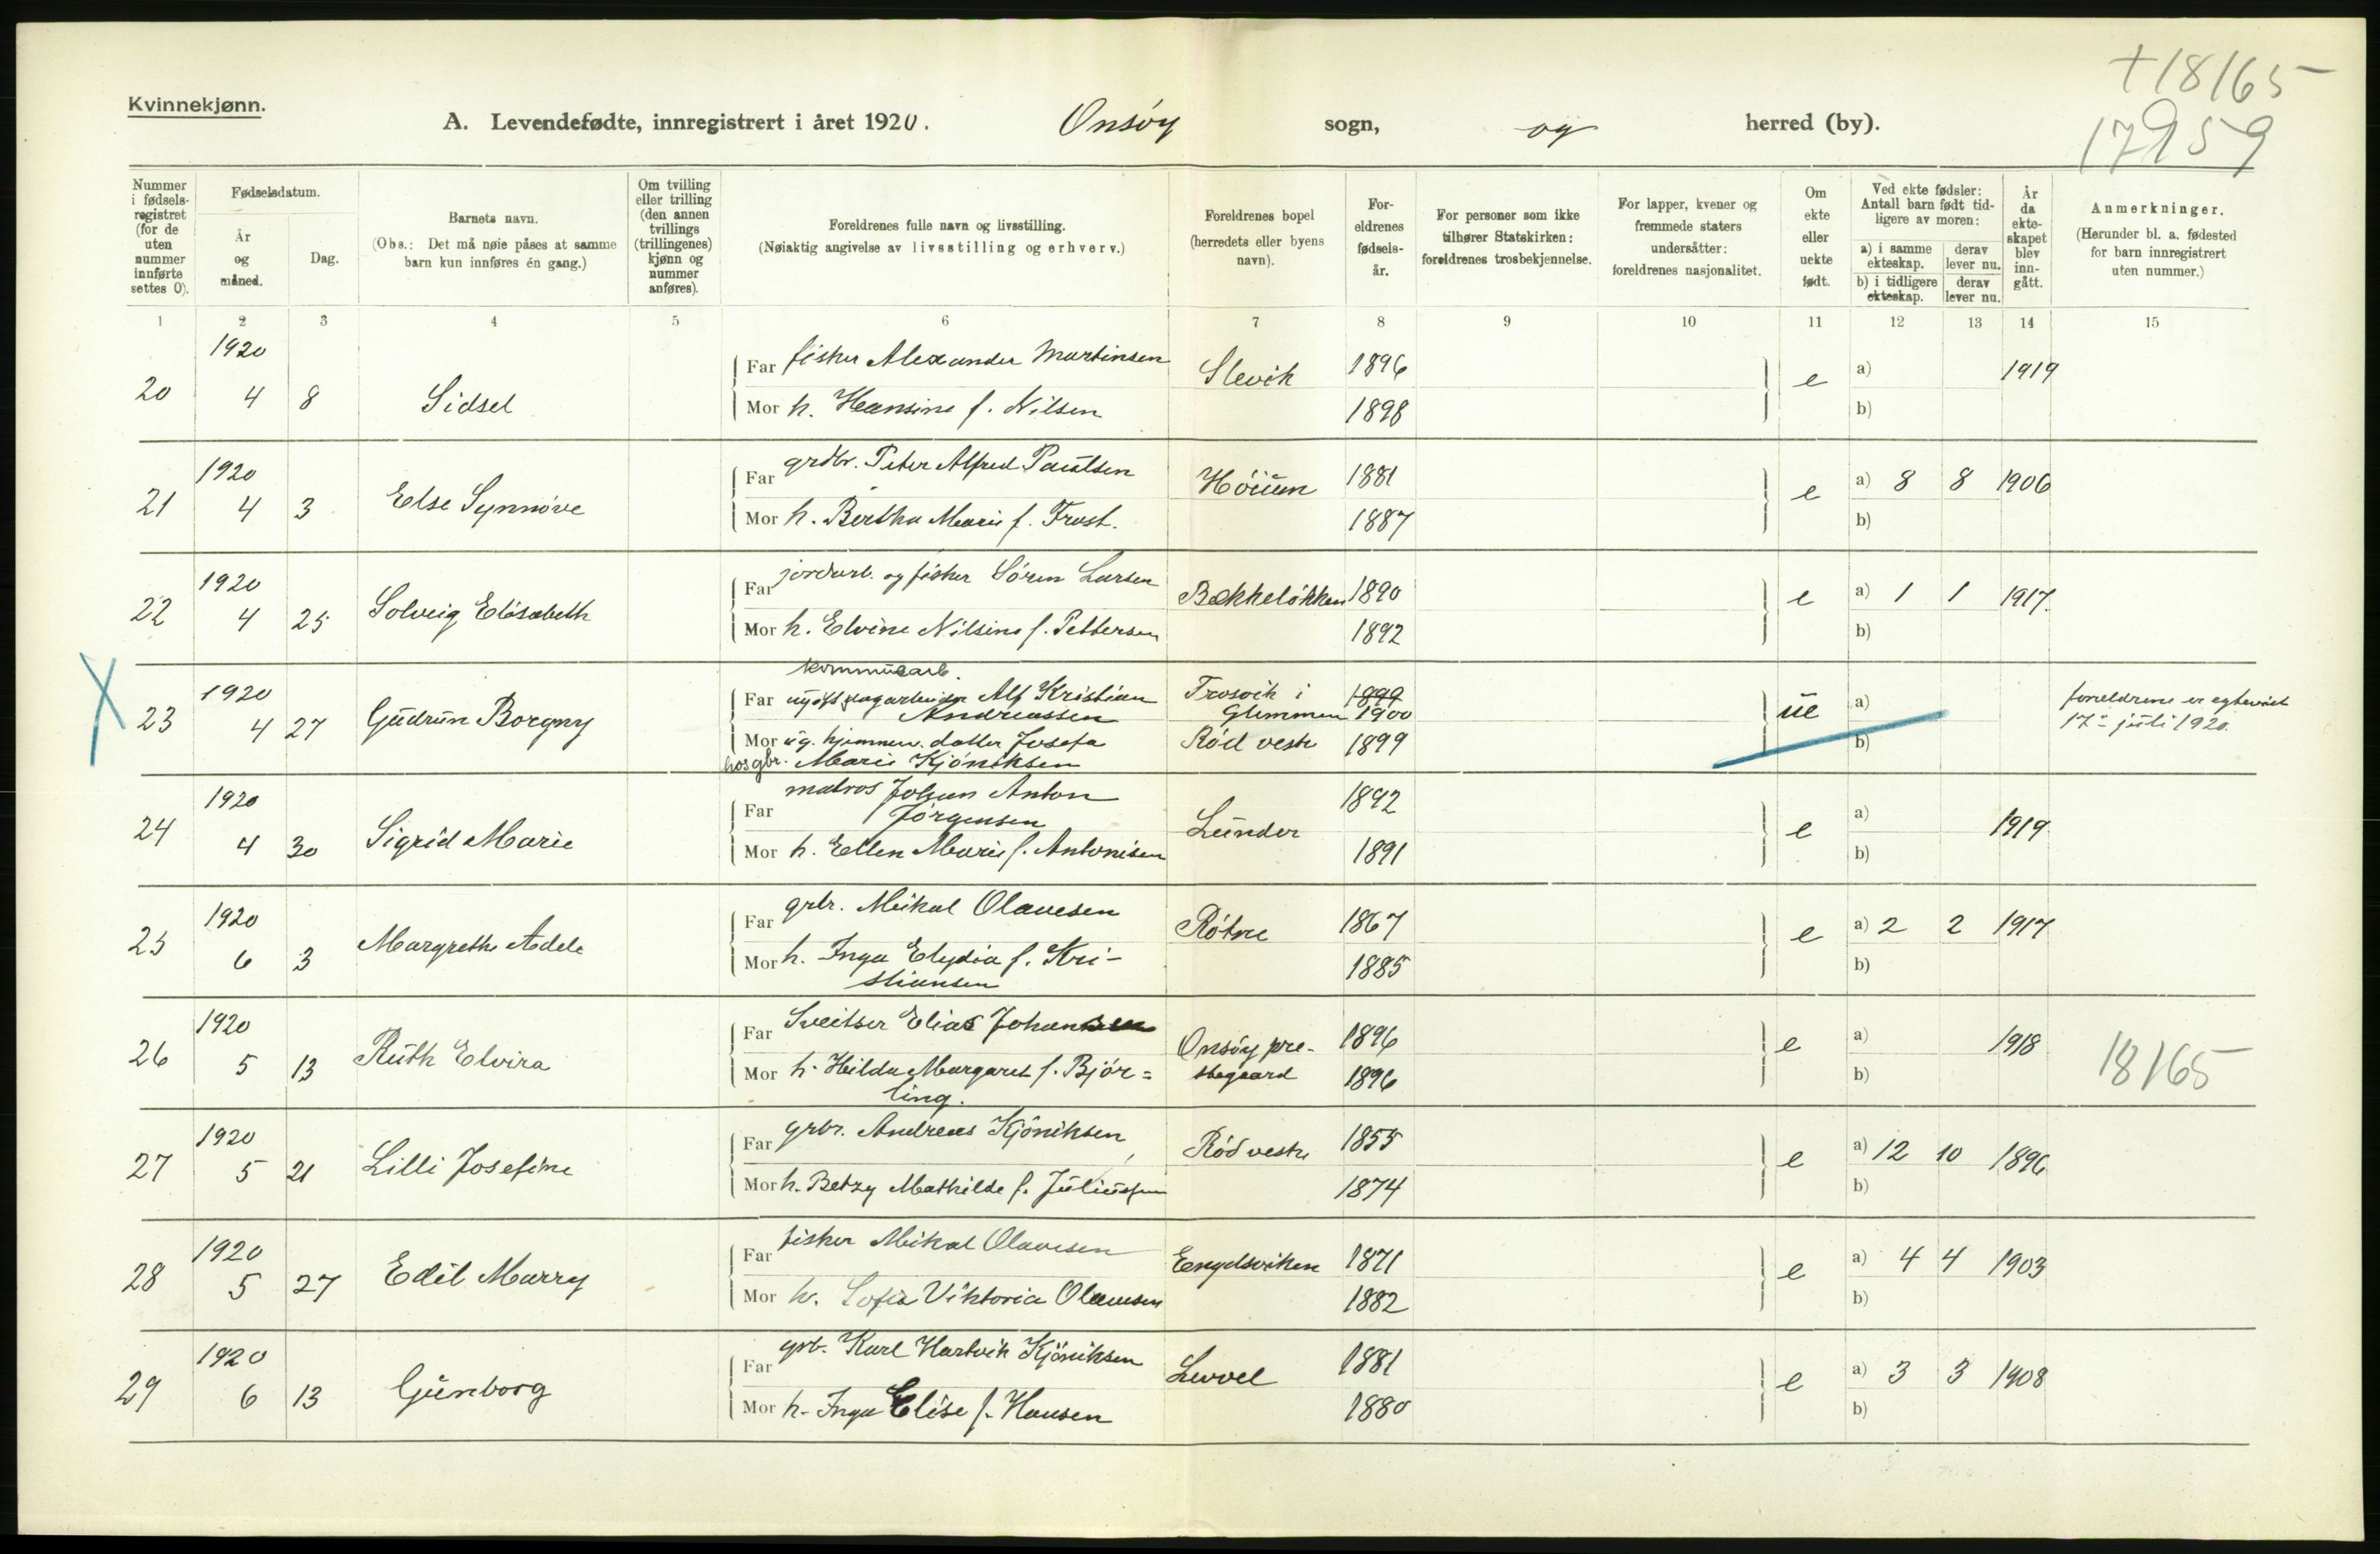 Kvinnekjønn.
+18165
17959
A. Levendefødte, innregistrert i året 1920. Onsøy sogn, og herred (by).
Nummer i fødsels-registret (for de uten nummer innførte settes 0).
Fødselsdatum.
År og måned.
Dag.
Barnets navn.
(Obs.: Det må nøie påses at samme barn kun innføres én gang.)
Om tvilling eller trilling (den annen tvillings (trillingenes) kjønn og nummer anføres).
Foreldrenes fulle navn og livsstilling.
(Nøiaktig angivelse av livsstilling og erhverv.)
Foreldrenes bopel (herredets eller byens navn).
For-eldrenes fødsels-år.
For personer som ikke tilhører Statskirken: foreldrenes trosbekjennelse.
For lapper, kvener og fremmede staters undersåtter: foreldrenes nasjonalitet.
Om ekte eller uekte født.
Ved ekte fødsler: Antall barn født tid-ligere av moren:
a) i samme ekteskap.
derav lever nu.
b) i tidligere ekteskap.
derav lever nu.
År da ekte-skapet blev inn-gått.
Anmerkninger.
(Herunder bl. a. fødested for barn innregistrert uten nummer.)
1 2 3 4 5 6 7 8 9 10 11 12 13 14 15
1920
Far fisker Alexander Martinsen Slevik 1896
20 4 8 Sidsel e a) 1919
Mor h. Hansine f. Nilsen 1898 b)
1920
Far grdbr. Peter Alfred Paulsen Høium 1881
21 4 3 Else Synnøve e a) 8 8 1906
Mor h. Bertha Marie f. Frost. 1887 b)
1920
Far jordarb. og fisker Sören Larsen Bekkeløkken 1890
22 4 25 Solveig Elisabeth e a) 1 1 1917.
Mor h. Elvine Nilsine f. Pettersen 1892 b)
kommunearb.
1920
Far Alf Kristian Trosvik i 1899
Andreassen Glemmen 1900
X 23 4 27 Gudrun Borgny ue a) foreldrene er egteviet
17de juli 1920.
Mor ug. hjemmev. datter Josefa Rød vestre 1899 b)
hos gbr. Marie Kjøniksen
1920
Far matros Johan Anton 1892
Jørgensen
24 4 30 Sigrid Marie Lunder e a) 1919
Mor h. Ellen Marie f. Antonisen 1891 b)
1920
Far grbr. Mikal Olavesen Røtne 1867
25 6 3 Margrethe Adele e a) 2 2 1917
Mor h. Inga Elydia f. Kri-
stiansen 1885 b)
1920
Far Sveitser Elias Johansen Onsøy pre- 1896
26 5 13 Ruth Elvira e a) 1918 18165
Mor h. Hilda Margaret f. Bjør= stegaard 1896 b)
ling.
1920
Far grbr. Andreas Kjøniksen Rød vestre 1855
27 5 21 Lilli Josefine e a) 12 10 1896
Mor h. Betzy Mathilde f. Juliussen 1874 b)
1920
Far fisker Mikal Olavesen Engelsviken 1871
28 5 27 Edil Marry e a) 4 4 1903
Mor h. Sofie Viktoria Olavesen 1882 b)
1920
Far grb. Karl Hartvik Kjøniksen Lervel 1881
29 6 13 Gunborg e a) 3 3 1908
Mor h. Inga Elise f. Hansen 1880 b)